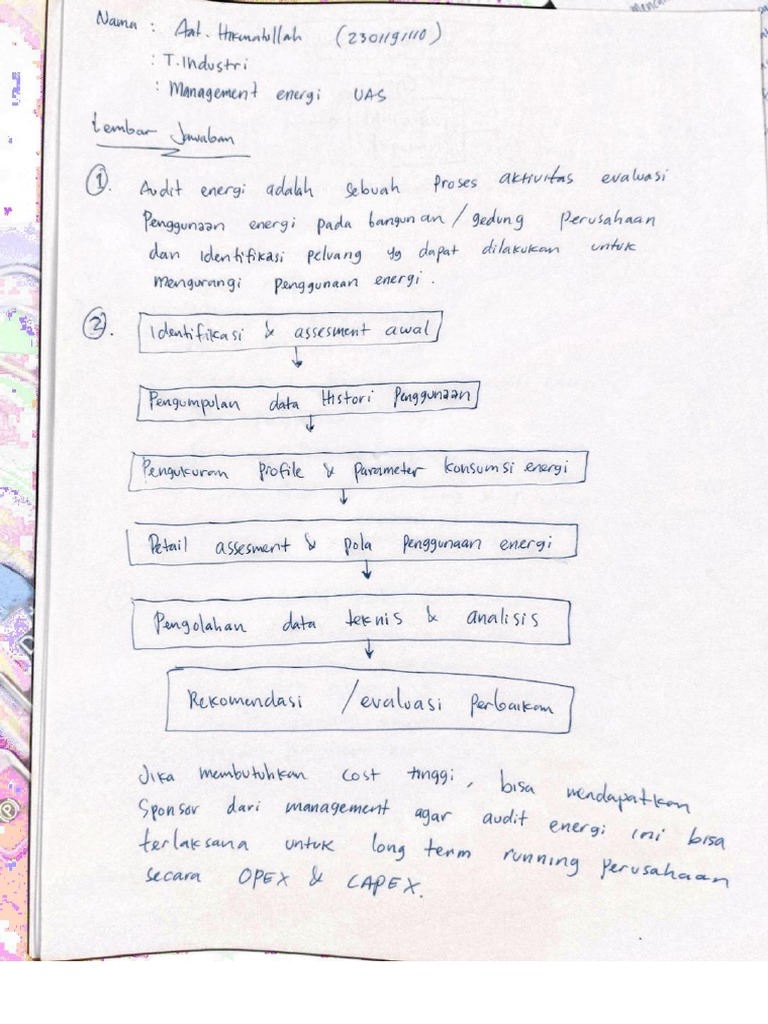 Nama : Aat. Hikmatullah (2301191110)
: T. Industri
: Management energi UAS
Lembar Jawaban
1. Audit energi adalah sebuah proses aktivitas evaluasi
Penggunaan energi pada bangunan / gedung perusahaan
dan identifikasi peluang yg dapat dilakukan untuk
mengurangi penggunaan energi.
2. Identifikasi & assesment awal
Pengumpulan data Histori Penggunaan
Pengukuran profile & parameter konsumsi energi
Detail assesment & pola penggunaan energi
Pengolahan data teknis & analisis
Rekomendasi / evaluasi perbaikan
Jika membutuhkan cost tinggi, bisa mendapatkan
Sponsor dari management agar audit energi ini bisa
terlaksana untuk long term running perusahaan
secara OPEX & CAPEX.